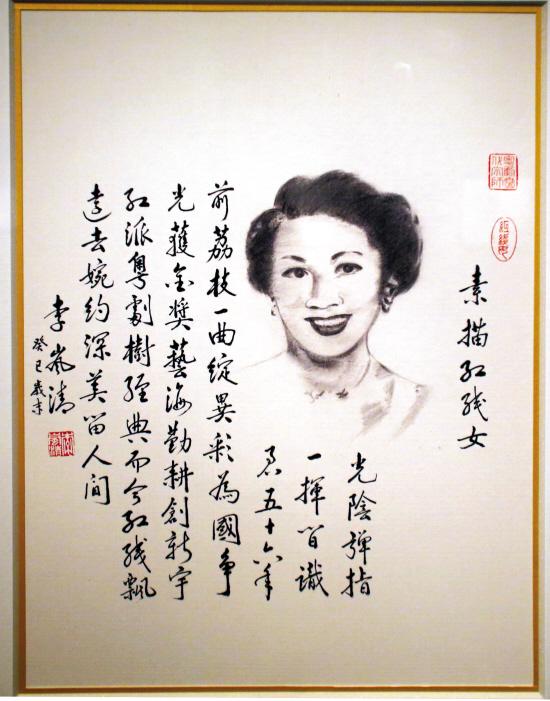 素描红线女
光陰弹指
一揮间識
君五十六年
前荔枝一曲綻異彩為國争
光獲金獎藝海勤耕創新宇
红派粤劇樹经典而今红线飘
遠去婉约深美留人间
李岚清
癸巳歲末